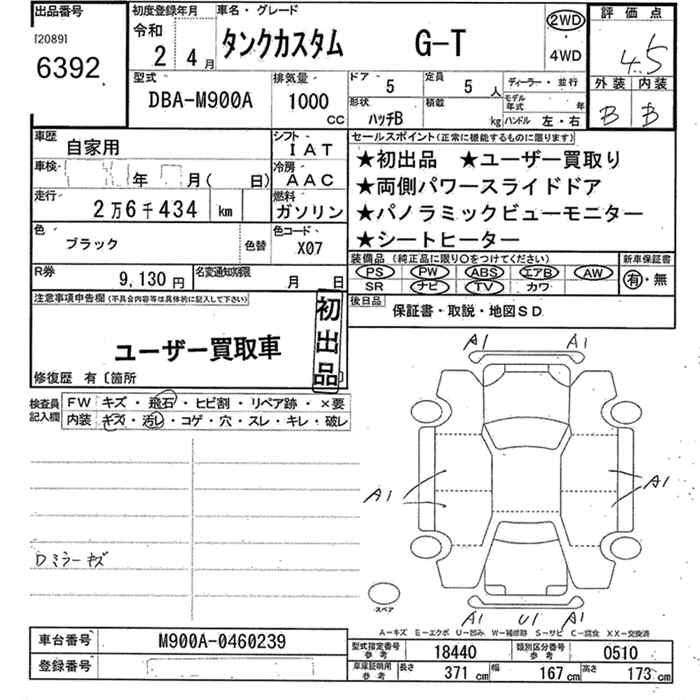 出品番号
[2089]
6392
初度登録年月
令和
2 4月
車名・グレード
タンクカスタム G-T
2WD
・
4WD
評価点
4.5
外装 内装
B B
型式
DBA-M900A
排気量
1000
cc
ドア 5
定員 5 人
ディーラー・並行
形状 ハッチB
積載 kg
モデル年式 年
ハンドル 左・右
車歴
自家用
シフト IAT
車検 年 月( 日)
冷房 AAC
走行
2万6千434 km
燃料
ガソリン
色
ブラック
色替
色コード
X07
R券
9,130円
名変通知期限
月 日
セールスポイント(正常に機能するものに限ります)
★初出品 ★ユーザー買取り
★両側パワースライドドア
★パノラミックビューモニター
★シートヒーター
装備品 (純正品に限り○をつけてください)
PS PW ABS エアB AW
SR ナビ TV カワ
新車保証書
有・無
後日品
保証書・取説・地図SD
注意事項申告欄(不具合内容等は具体的に記入して下さい)
ユーザー買取車
初出品
修復歴 有〔箇所
検査員記入欄
FW キズ・飛石・ヒビ割・リペア跡・×要
内装 キズ・汚レ・コゲ・穴・スレ・キレ・破レ
Dミラーキズ
A1 A1
A1 A1
A1 U1 A1
スペア
A-キズ E-エクボ U-凹み W-補修跡 S-サビ C-腐食 XX-交換済
車台番号 M900A-0460239
登録番号
型式指定番号参考 18440
類別区分番号参考 0510
車庫証明用参考 長さ 371cm 幅 167cm 高さ 173cm